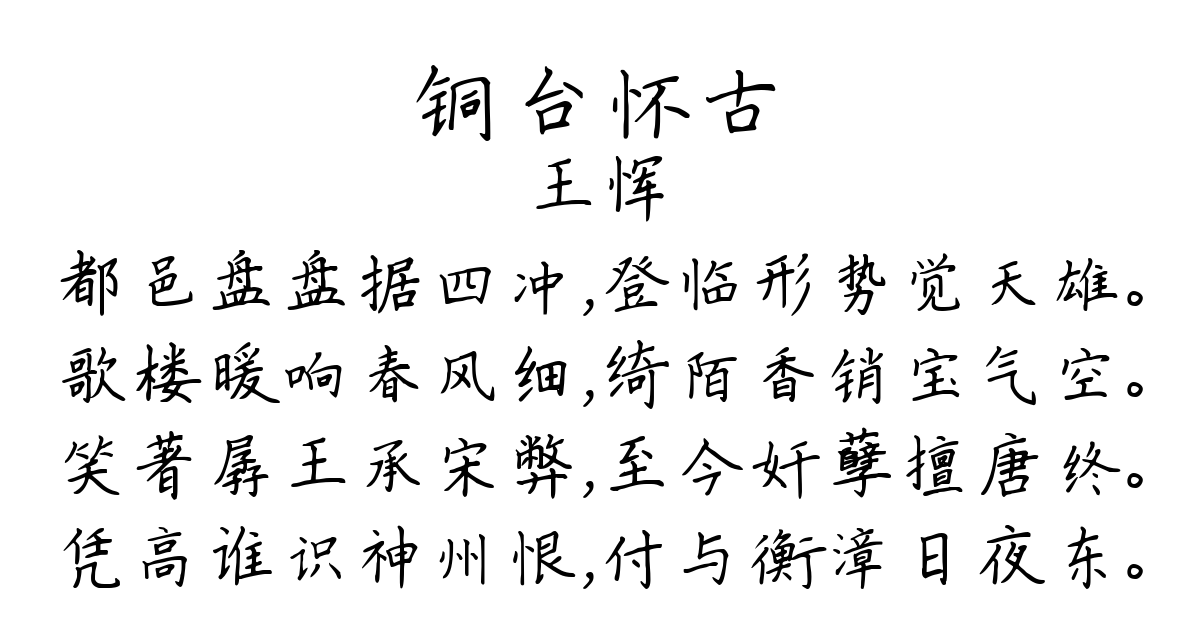 铜台怀古
王恽
都邑盘盘据四冲,登临形势觉天雄。
歌楼暖响春风细,绮陌香销宝气空。
笑著孱王承宋弊,至今奸孽擅唐终。
凭高谁识神州恨,付与衡漳日夜东。